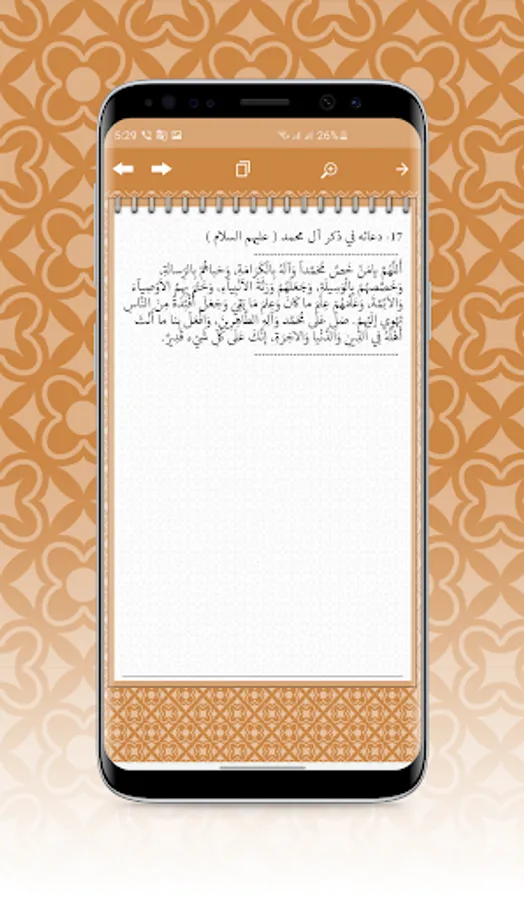 5:29
26%
17- دعائه في ذكر آل محمد ( عليهم السلام )
أَللَّهُمَّ يامَنْ خَصَّ مُحَمَّداً وَآلَهُ بِالْكَرَامَةِ، وَحَباهُمْ بِالرِّسالَةِ،
وَخَصَّصَهُمْ بِالْوَسِيلَةِ، وَجَعَلَهُمْ وَرَثَةَ الأنْبِياءِ، وَخَتَمَ بِهِمُ الأَوْصِياءَ
وَالأئِمَّةَ، وَعَلَّمَهُمْ عِلْمَ ما كانَ وَعِلْمَ مَا بَقِيَ وَجَعَلَ أَفْئِدَةً مِنَ النَّاسِ
تَهْوِي إلَيْهِمْ. صَلِّ عَلَى مُحَمَّد وَآلِهِ الطَّاهِرِينَ، وَافْعَلْ بِنا ما أَنْتَ
أَهْلُهُ فِي الدِّينِ وَالدُّنْيا وَالآخِرَةِ. إنَّكَ عَلَى كُلِّ شَيْء قَدِيرٌ.